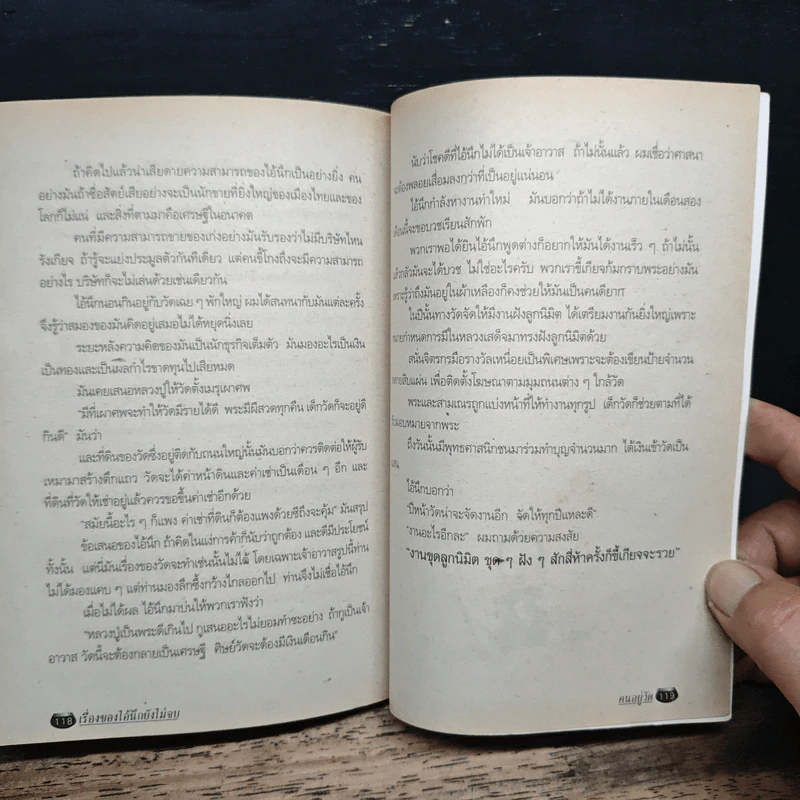 ถ้าคิดไปแล้วน่าเสียดายความสามารถของไอ้นึกเป็นอย่างยิ่ง คน
อย่างมันถ้าซื่อสัตย์เสียอย่างจะเป็นนักขายที่ยิ่งใหญ่ของเมืองไทยและของ
โลกก็ไม่แน่ และสิ่งที่ตามมาคือเศรษฐีในอนาคต
คนที่มีความสามารถขายของเก่งอย่างมันรับรองว่าไม่มีบริษัทไหน
รังเกียจ ถ้ารู้จะแย่งประมูลตัวกันทีเดียว แต่คนขี้โกงถึงจะมีความสามารถ
อย่างไร บริษัทก็จะไม่เล่นด้วยเช่นเดียวกัน
ไอ้นึกนอนกินอยู่กับวัดเฉย ๆ พักใหญ่ ผมได้สนทนากับมันแต่ละครั้ง
จึงรู้ว่าสมองของมันคิดอยู่เสมอไม่ได้หยุดนิ่งเลย
ระยะหลังความคิดของมันเป็นนักธุรกิจเต็มตัว มันมองอะไรเป็นเงิน
เป็นทองและเป็นผลกำไรขาดทุนไปเสียหมด
มันเคยเสนอหลวงปู่ให้วัดตั้งเมรุเผาศพ
"มีที่เผาศพจะทำให้วัดมีรายได้ดี พระมีผีสวดทุกคืน เด็กวัดก็จะอยู่ดี
กินดี" มันว่า
และที่ดินของวัดซึ่งอยู่ติดกับถนนใหญ่นั้นมันบอกว่าควรติดต่อให้ผู้รับ
เหมามาสร้างตึกแถว วัดจะได้ค่าหน้าดินและค่าเช่าเป็นเดือน ๆ อีก และ
ที่ดินที่วัดให้เช่าอยู่แล้วควรขอขึ้นค่าเช่าอีกด้วย
"สมัยนี้อะไร ๆ ก็แพง ค่าเช่าที่ดินก็ต้องแพงด้วยซีถึงจะคุ้ม" มันสรุป
ข้อเสนอของไอ้นึก ถ้าคิดในแง่การค้าก็นับว่าถูกต้อง และดีมีประโยชน์
ทั้งนั้น แต่นี่มันเรื่องของวัดจะทำเช่นนั้นไม่ได้ โดยเฉพาะเจ้าอาวาสรูปนี้ท่าน
ไม่ได้มองแคบ ๆ แต่ท่านมองลึกซึ้งกว้างไกลออกไป ท่านจึงไม่เชื่อไอ้นึก
เมื่อไม่ได้ผล ไอ้นึกมาบ่นให้พวกเราฟังว่า
"หลวงปู่เป็นพระดีเกินไป กูเสนออะไรไม่ยอมทำซะอย่าง ถ้ากูเป็นเจ้า
อาวาส วัดนี้จะต้องกลายเป็นเศรษฐี ศิษย์วัดจะต้องมีเงินเดือนกิน"
118 เรื่องของไอ้นึกยังไม่จบ
นับว่าโชคดีที่ไอ้นึกไม่ได้เป็นเจ้าอาวาส ถ้าไม่นั้นแล้ว ผมเชื่อว่าศาสนา
จะต้องพลอยเสื่อมลงกว่าที่เป็นอยู่แน่นอน
ไอ้นึกกำลังหางานทำใหม่ มันบอกว่าถ้าไม่ได้งานภายในเดือนสอง
เดือนนี้จะขอบวชเรียนสักพัก
พวกเราพอได้ยินไอ้นึกพูดต่างก็อยากให้มันได้งานเร็ว ๆ ถ้าไม่นั้น
แล้วกลัวมันจะได้บวช ไม่ใช่อะไรครับ พวกเราขี้เกียจก้มกราบพระอย่างมัน
เพราะรู้ว่าถึงมันอยู่ในผ้าเหลืองก็คงช่วยให้มันเป็นคนดียาก
ในปีนั้นทางวัดจัดให้มีงานฝังลูกนิมิต ได้เตรียมงานกันยิ่งใหญ่เพราะ
หมายกำหนดการมีในหลวงเสด็จมาทรงฝังลูกนิมิตด้วย
สนั่นจิตรกรมือรางวัลเหนื่อยเป็นพิเศษเพราะจะต้องเขียนป้ายจำนวน
หลายสิบแผ่น เพื่อติดตั้งโฆษณาตามมุมถนนต่าง ๆ ใกล้วัด
พระและสามเณรถูกแบ่งหน้าที่ให้ทำงานทุกรูป เด็กวัดก็ช่วยตามที่ได้
รับมอบหมายจากพระ
ถึงวันนั้นมีพุทธศาสนิกชนมาร่วมทำบุญจำนวนมาก ได้เงินเข้าวัดเป็น
แสน
ไอ้นึกบอกว่า
"ปีหน้าวัดน่าจะจัดงานอีก จัดให้ทุกปีแหละดี"
"งานอะไรอีกละ" ผมถามด้วยความสงสัย
"งานขุดลูกนิมิต ขุด ๆ ฝัง ๆ สักสี่ห้าครั้งก็ขี้เกียจจะรวย"
คนอยู่วัด 119